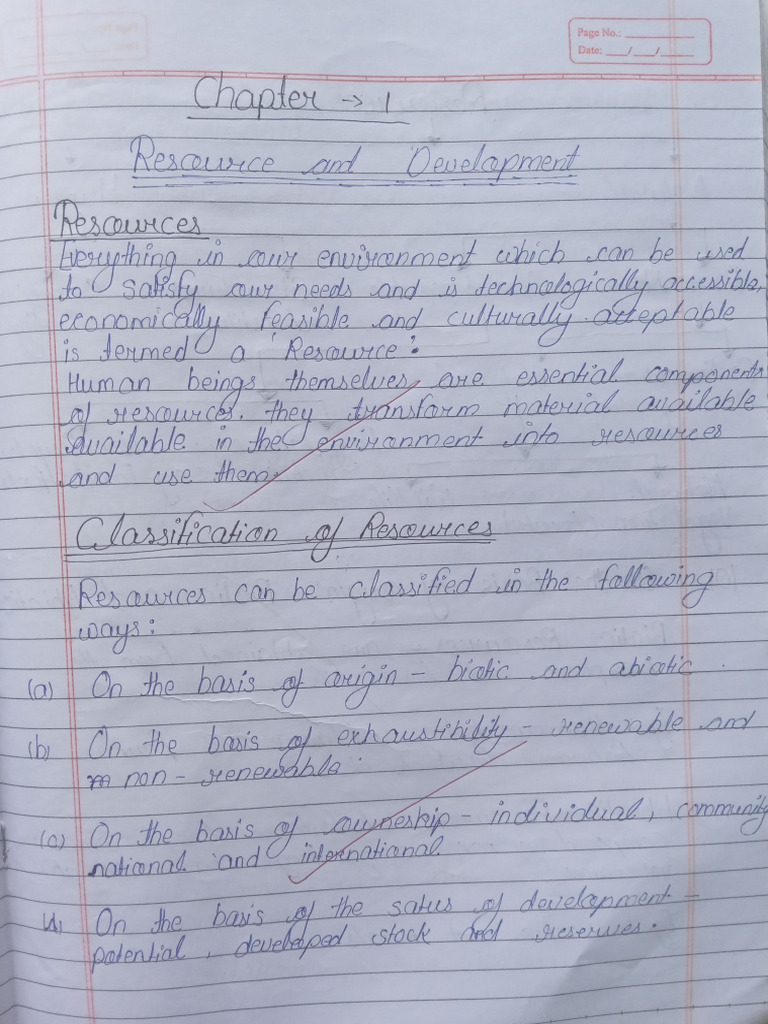 Page No.:
Date: __/__/__
Chapter → 1
Resource and Development
Resources
Everything in our environment which can be used
to satisfy our needs and is technologically accessible,
economically feasible and culturally acceptable
is termed a 'Resource'.
Human beings themselves are essential components
of resources. they transform material available
available in the environment into resources
and use them.
Classification of Resources
Resources can be classified in the following
ways:
(a) On the basis of origin - biotic and abiotic.
(b) On the basis of exhaustibility - renewable and
non - renewable.
(c) On the basis of owneship - individual, community
national and international.
(d) On the basis of the satus of development -
potential, developed stock and reserves.